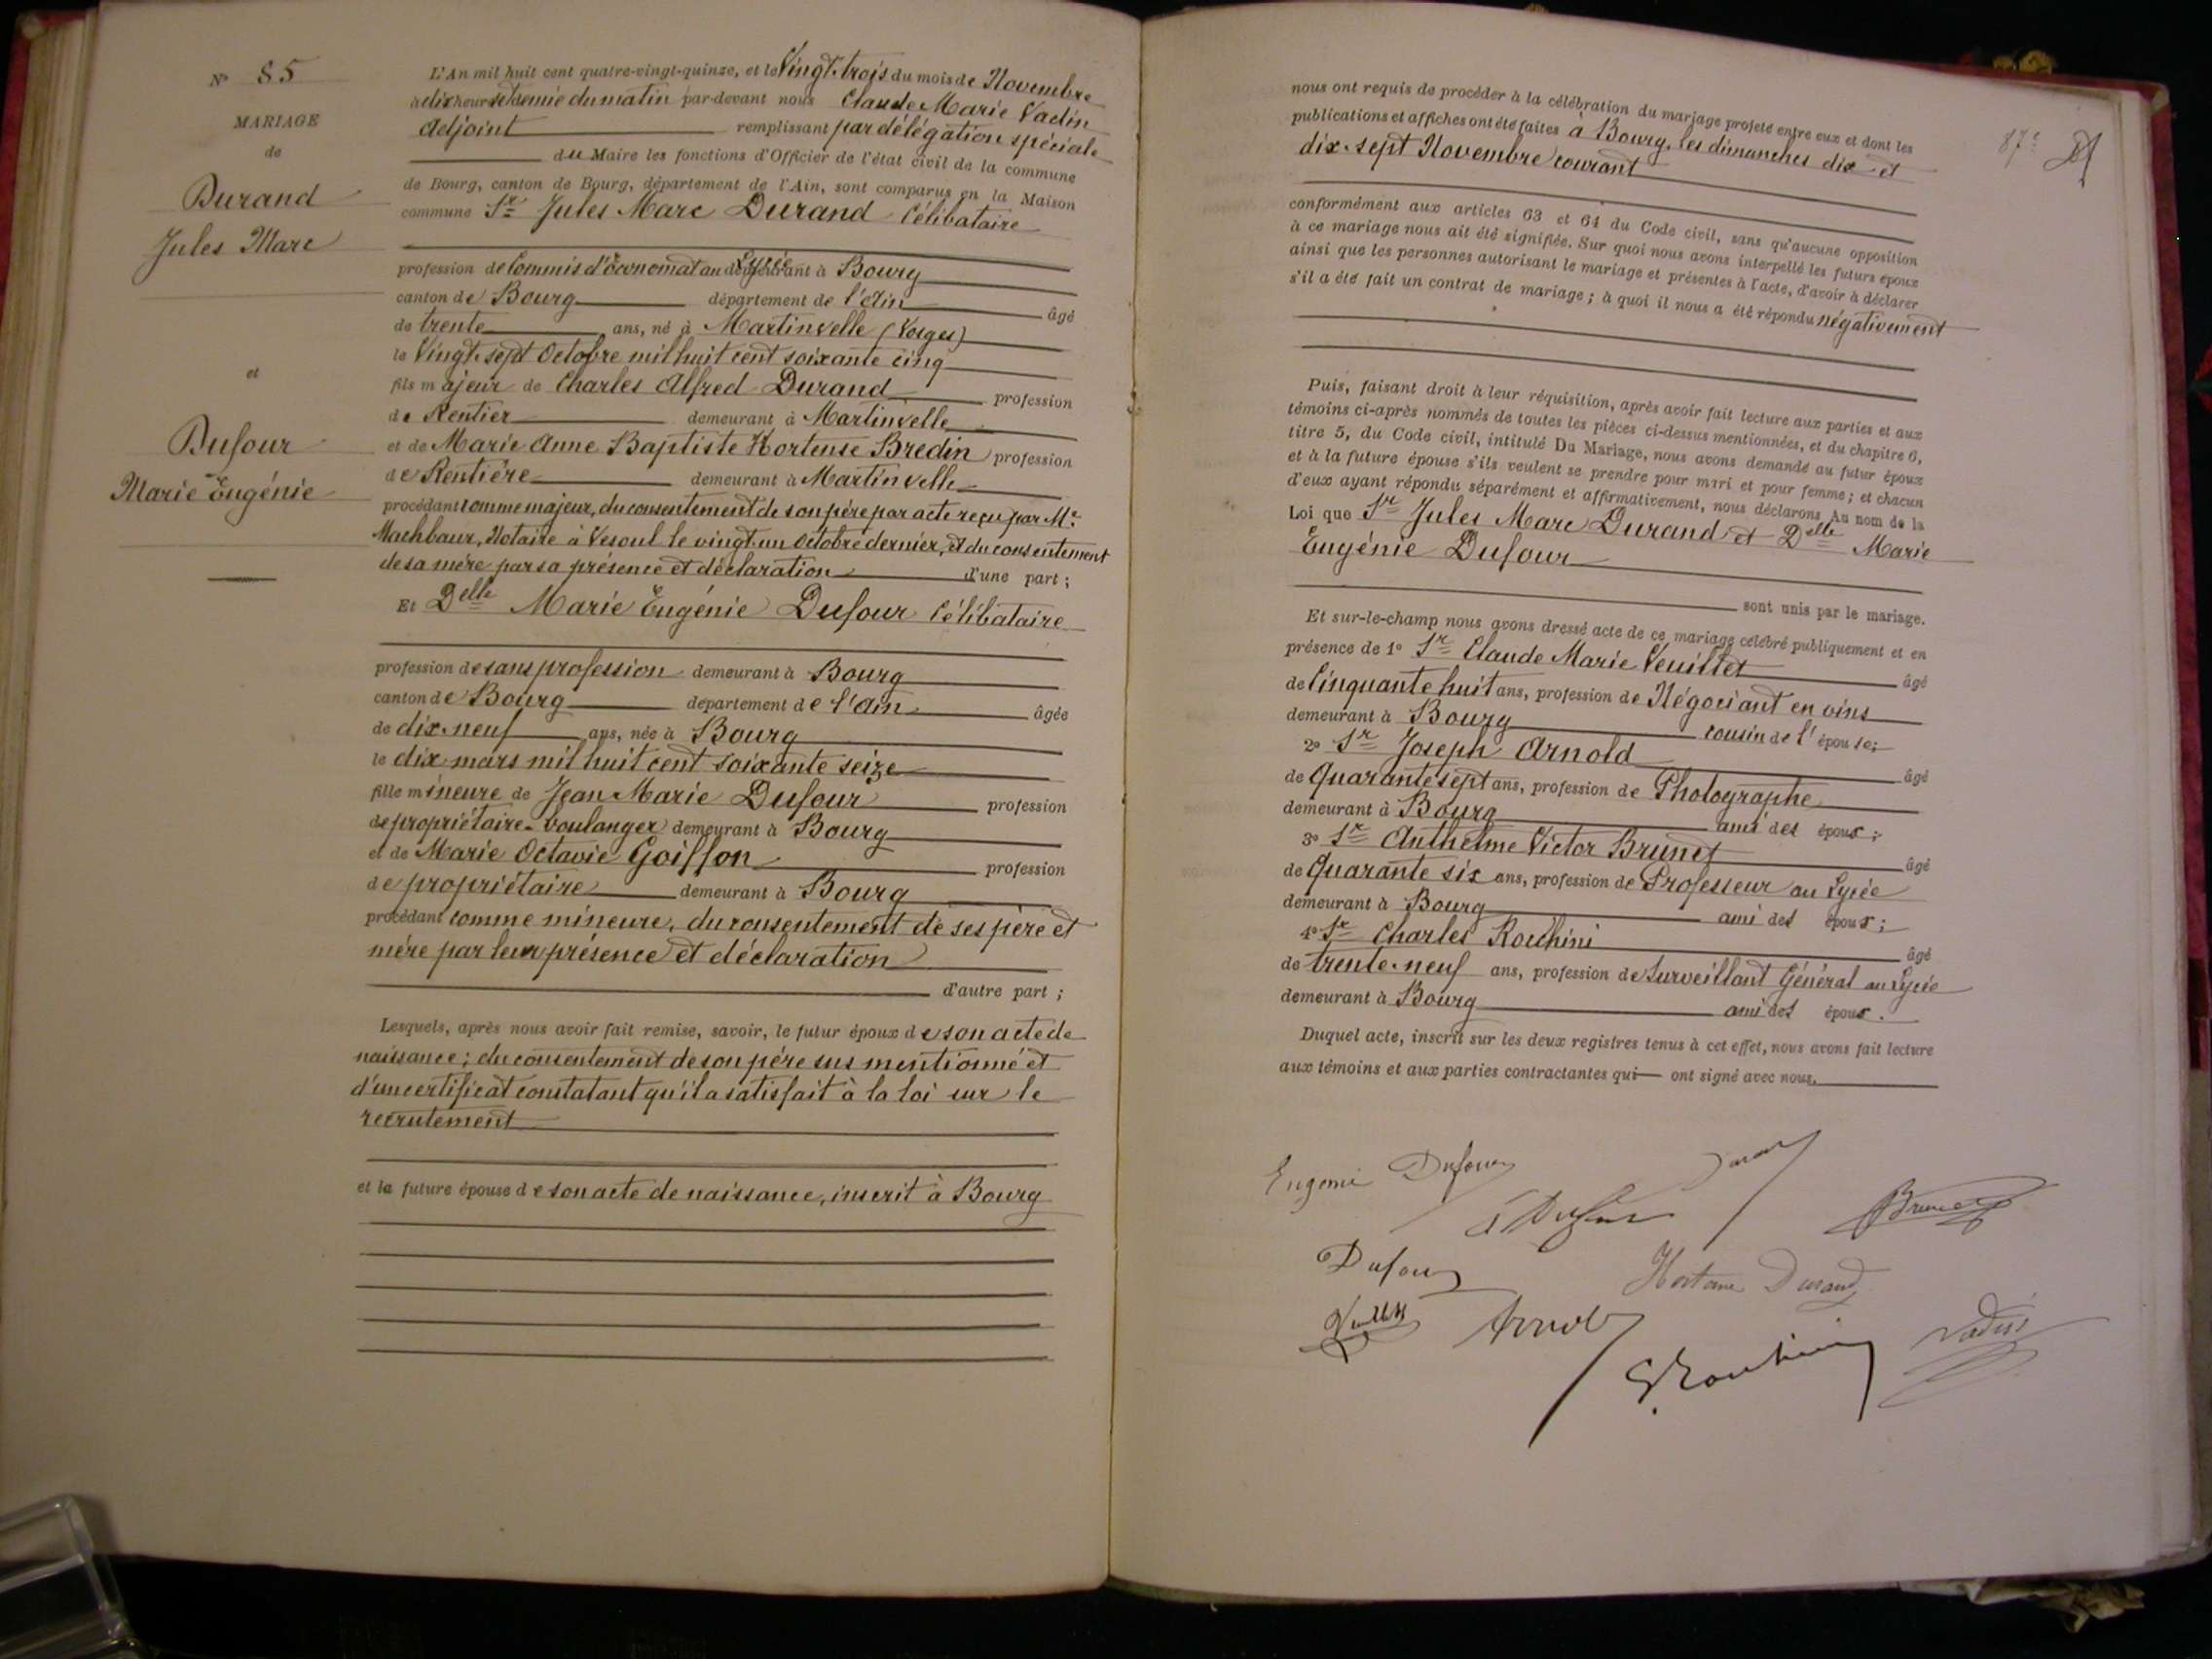 N° 85
MARIAGE
de
Durand
Jules Marc
et
Dufour
Marie Eugénie
L'An mil huit cent quatre-vingt-quinze, et le Vingt-trois du mois de Novembre
à dix heures et demie du matin par-devant nous Claude Marie Vadin
Adjoint remplissant par délégation spéciale
du Maire les fonctions d'Officier de l'état civil de la commune
de Bourg, canton de Bourg, département de l'Ain, sont comparus en la Maison
commune Sr Jules Marc Durand Célibataire
profession de Commis d'économat au Lycée demeurant à Bourg
canton de Bourg département de l'Ain âgé
de trente ans, né à Martinvelle (Vosges)
le Vingt-sept Octobre mil huit cent soixante cinq
fils majeur de Charles Alfred Durand profession
de Rentier demeurant à Martinvelle
et de Marie Anne Baptiste Hortense Bredin profession
de Rentière demeurant à Martinvelle
procédant comme majeur, du consentement de son père par acte reçu par Me
Machbaur, Notaire à Vesoul le vingt-un Octobre dernier, et du consentement
de sa mère par sa présence et déclaration d'une part ;
Et Delle Marie Eugénie Dufour Célibataire
profession de sans profession demeurant à Bourg
canton de Bourg département de l'Ain âgée
de dix-neuf ans, née à Bourg
le dix mars mil huit cent soixante seize
fille mineure de Jean Marie Dufour profession
de propriétaire-boulanger demeurant à Bourg
et de Marie Octavie Goiffon profession
de propriétaire demeurant à Bourg
procédant comme mineure, du consentement de ses père et
mère par leur présence et déclaration
d'autre part ;
Lesquels, après nous avoir fait remise, savoir, le futur époux de son acte de
naissance ; du consentement de son père sus mentionné et
d'un certificat constatant qu'il a satisfait à la loi sur le
recrutement
et la future épouse de son acte de naissance, inscrit à Bourg
87e
nous ont requis de procéder à la célébration du mariage projeté entre eux et dont les
publications et affiches ont été faites à Bourg, les dimanches dix et
dix-sept Novembre courant
conformément aux articles 63 et 64 du Code civil, sans qu'aucune opposition
à ce mariage nous ait été signifiée. Sur quoi nous avons interpellé les futurs époux
ainsi que les personnes autorisant le mariage et présentes à l'acte, d'avoir à déclarer
s'il a été fait un contrat de mariage ; à quoi il nous a été répondu négativement
Puis, faisant droit à leur réquisition, après avoir fait lecture aux parties et aux
témoins ci-après nommés de toutes les pièces ci-dessus mentionnées, et du chapitre 6,
titre 5, du Code civil, intitulé Du Mariage, nous avons demandé au futur époux
et à la future épouse s'ils veulent se prendre pour mari et pour femme ; et chacun
d'eux ayant répondu séparément et affirmativement, nous déclarons Au nom de la
Loi que Sr Jules Marc Durand et Delle Marie
Eugénie Dufour
sont unis par le mariage.
Et sur-le-champ nous avons dressé acte de ce mariage célébré publiquement et en
présence de 1° Sr Claude Marie Veuillet âgé
de Cinquante huit ans, profession de Négociant en vins
demeurant à Bourg cousin de l'épouse ;
2° Sr Joseph Arnold âgé
de Quarante sept ans, profession de Photographe
demeurant à Bourg ami des époux ;
3° Sr Anthelme Victor Brunet âgé
de Quarante six ans, profession de Professeur au Lycée
demeurant à Bourg ami des époux ;
4° Sr Charles Rouchini âgé
de trente-neuf ans, profession de Surveillant Général au Lycée
demeurant à Bourg ami des époux.
Duquel acte, inscrit sur les deux registres tenus à cet effet, nous avons fait lecture
aux témoins et aux parties contractantes qui ont signé avec nous.
Eugénie Dufour Durand
Dufour Brunet
Dufour Hortense Durand
Veuillet Arnold Vadin
Rouchini